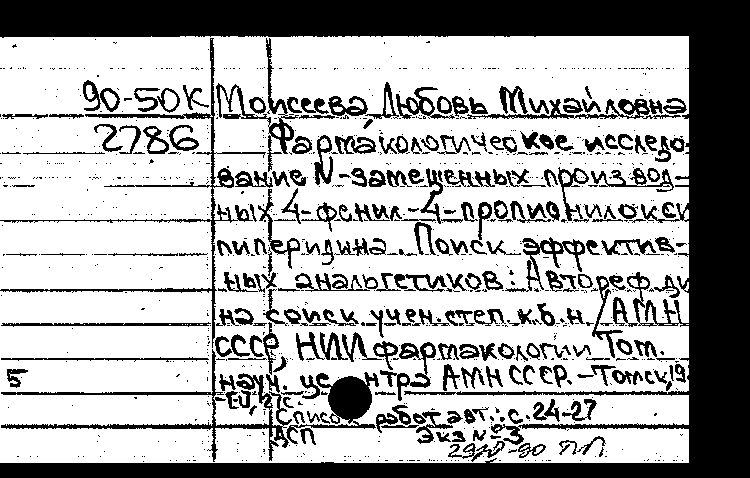 90-50К Моисеева Любовь Михайловна
2786 Фармакологическое исследо-
вание N-замещенных производ-
ных 4-фенил-4-пропионилокси
пиперидина. Поиск эффектив-
ных анальгетиков: Автореф. ди
на соиск. учен. степ. к.б.н. / АМН
СССР, НИИ фармакологии Том.
5 науч. це нтра АМН СССР. - Томск, 19
Список работ авт.: с. 24-27
ДСП Экз № 3